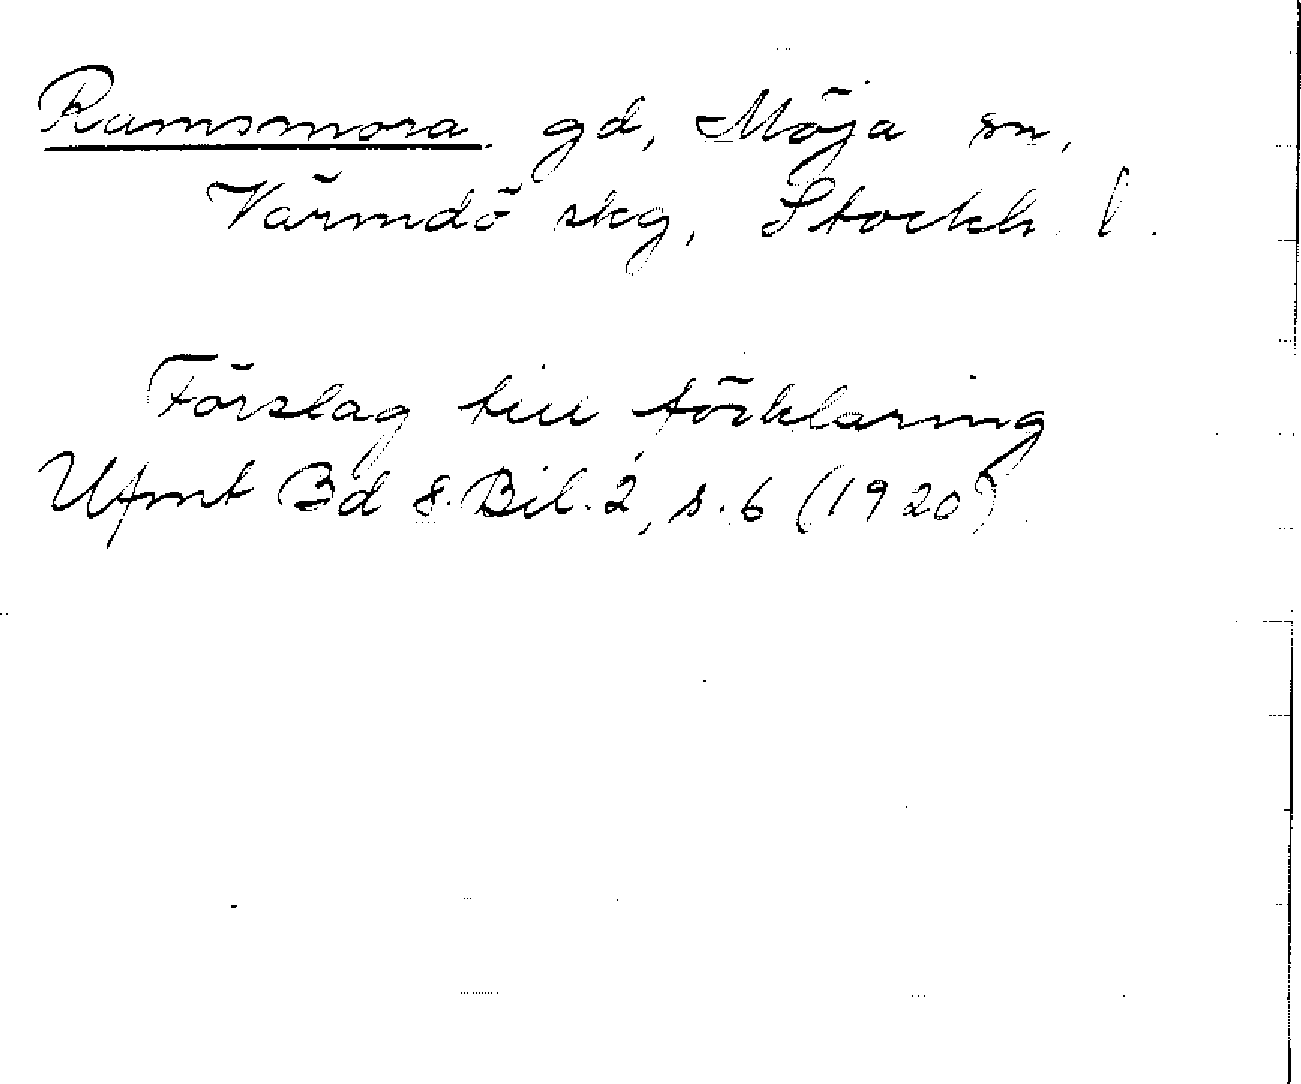 Ramsmora gd, Möja sn,
Värmdö skg, Stockh. l.
Förslag till förklaring
Ufmt Bd 8. Bil. 2, s. 6 (1920)